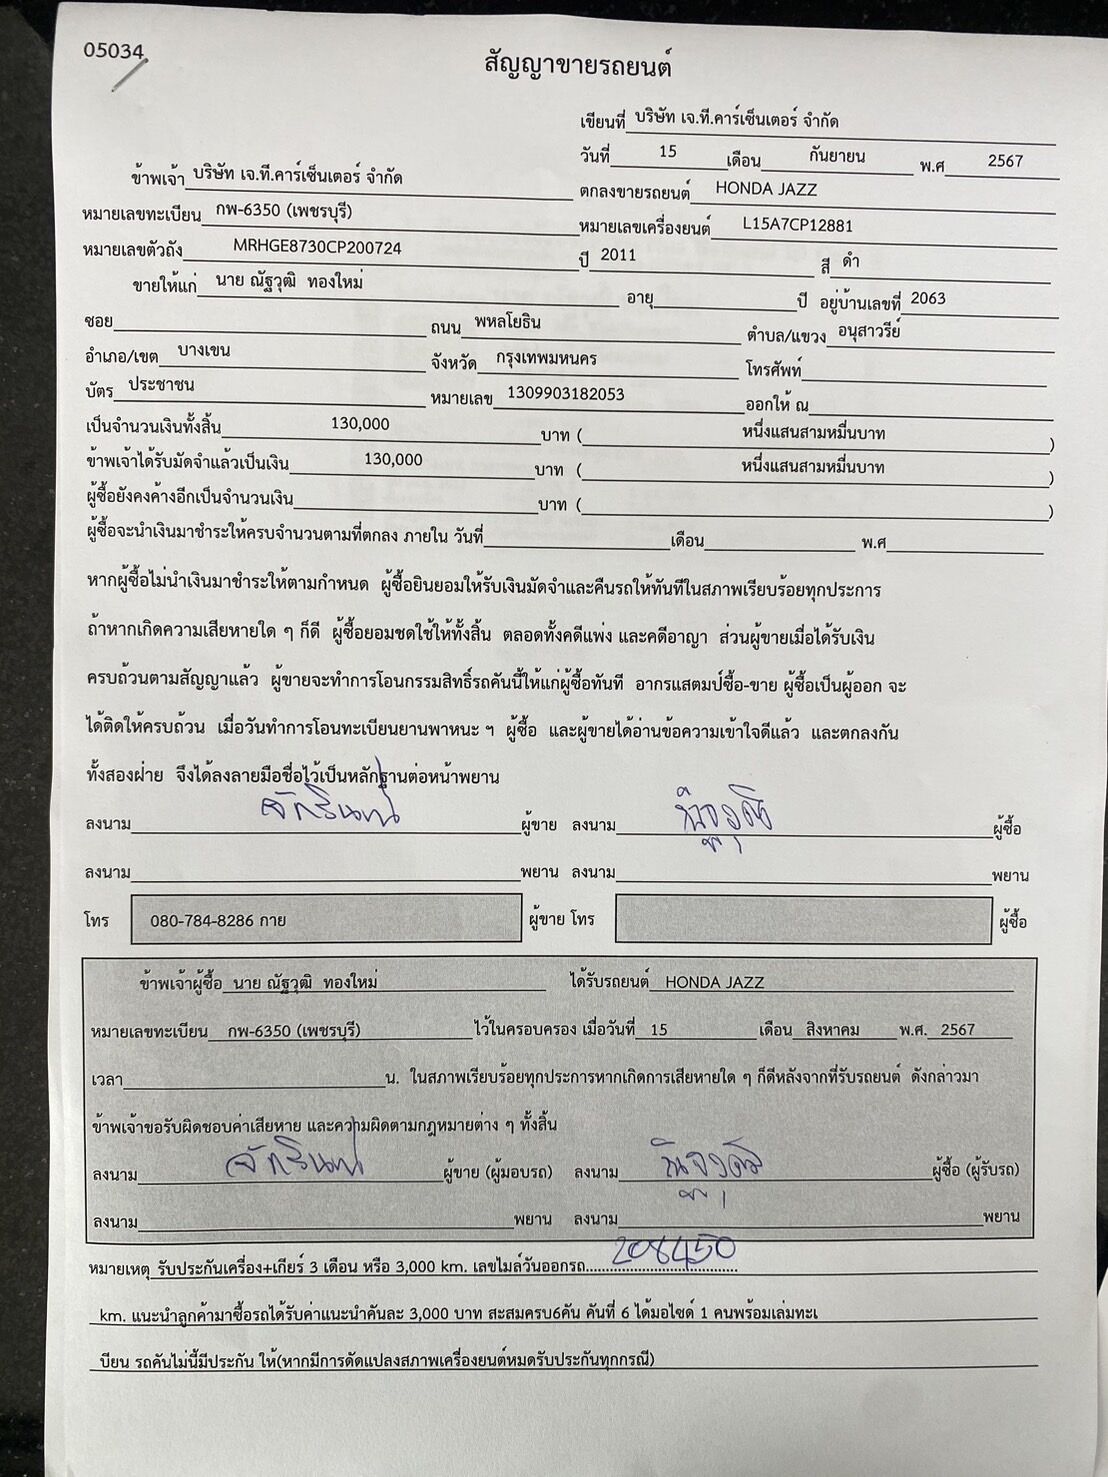 05034
สัญญาขายรถยนต์
เขียนที่ บริษัท เจ.ที.คาร์เซ็นเตอร์ จำกัด
วันที่ 15 เดือน กันยายน พ.ศ 2567
ข้าพเจ้า บริษัท เจ.ที.คาร์เซ็นเตอร์ จำกัด ตกลงขายรถยนต์ HONDA JAZZ
หมายเลขทะเบียน กพ-6350 (เพชรบุรี) หมายเลขเครื่องยนต์ L15A7CP12881
หมายเลขตัวถัง MRHGE8730CP200724 ปี 2011 สี ดำ
ขายให้แก่ นาย ณัฐวุฒิ ทองใหม่ อายุ ปี อยู่บ้านเลขที่ 2063
ซอย ถนน พหลโยธิน ตำบล/แขวง อนุสาวรีย์
อำเภอ/เขต บางเขน จังหวัด กรุงเทพมหนคร โทรศัพท์
บัตร ประชาชน หมายเลข 1309903182053 ออกให้ ณ
เป็นจำนวนเงินทั้งสิ้น 130,000 บาท ( หนึ่งแสนสามหมื่นบาท )
ข้าพเจ้าได้รับมัดจำแล้วเป็นเงิน 130,000 บาท ( หนึ่งแสนสามหมื่นบาท )
ผู้ซื้อยังคงค้างอีกเป็นจำนวนเงิน บาท ( )
ผู้ซื้อจะนำเงินมาชำระให้ครบจำนวนตามที่ตกลง ภายใน วันที่ เดือน พ.ศ
หากผู้ซื้อไม่นำเงินมาชำระให้ตามกำหนด ผู้ซื้อยินยอมให้รับเงินมัดจำและคืนรถให้ทันทีในสภาพเรียบร้อยทุกประการ
ถ้าหากเกิดความเสียหายใด ๆ ก็ดี ผู้ซื้อยอมชดใช้ให้ทั้งสิ้น ตลอดทั้งคดีแพ่ง และคดีอาญา ส่วนผู้ขายเมื่อได้รับเงิน
ครบถ้วนตามสัญญาแล้ว ผู้ขายจะทำการโอนกรรมสิทธิ์รถคันนี้ให้แก่ผู้ซื้อทันที อากรแสตมป์ซื้อ-ขาย ผู้ซื้อเป็นผู้ออก จะ
ได้ติดให้ครบถ้วน เมื่อวันทำการโอนทะเบียนยานพาหนะ ฯ ผู้ซื้อ และผู้ขายได้อ่านข้อความเข้าใจดีแล้ว และตกลงกัน
ทั้งสองฝ่าย จึงได้ลงลายมือชื่อไว้เป็นหลักฐานต่อหน้าพยาน
ลงนาม ผู้ขาย ลงนาม ผู้ซื้อ
ลงนาม พยาน ลงนาม พยาน
โทร 080-784-8286 กาย ผู้ขาย โทร ผู้ซื้อ
ข้าพเจ้าผู้ซื้อ นาย ณัฐวุฒิ ทองใหม่ ได้รับรถยนต์ HONDA JAZZ
หมายเลขทะเบียน กพ-6350 (เพชรบุรี) ไว้ในครอบครอง เมื่อวันที่ 15 เดือน สิงหาคม พ.ศ. 2567
เวลา น. ในสภาพเรียบร้อยทุกประการหากเกิดการเสียหายใด ๆ ก็ดีหลังจากที่รับรถยนต์ ดังกล่าวมา
ข้าพเจ้าขอรับผิดชอบค่าเสียหาย และความผิดตามกฎหมายต่าง ๆ ทั้งสิ้น
ลงนาม ผู้ขาย (ผู้มอบรถ) ลงนาม ผู้ซื้อ (ผู้รับรถ)
ลงนาม พยาน ลงนาม พยาน
หมายเหตุ รับประกันเครื่อง+เกียร์ 3 เดือน หรือ 3,000 km. เลขไมล์วันออกรถ 208450
km. แนะนำลูกค้ามาซื้อรถได้รับค่าแนะนำคันละ 3,000 บาท สะสมครบ6คัน คันที่ 6 ได้มอไซด์ 1 คนพร้อมเล่มทะเ
บียน รถคันไม่นี้มีประกัน ให้(หากมีการดัดแปลงสภาพเครื่องยนต์หมดรับประกันทุกกรณี)